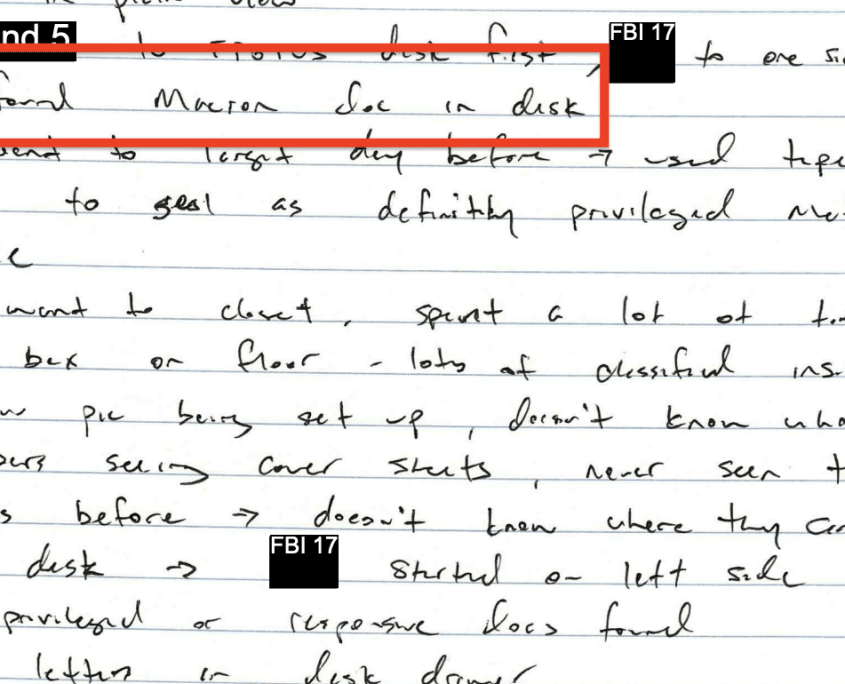 in plain view
nd 5 to FPOTUS desk first, FBI 17 to one si
found Macron doc in desk
went to largest day before → used tape
to seal as definitely privileged
want to closet, spent a lot of
box on floor - lots of classified ins
pic being set up, doesn't know who
seeing cover sheets, never seen
s before → doesn't know where they
desk → FBI 17 started on left side
privileged or responsive docs found
letters in desk drawer